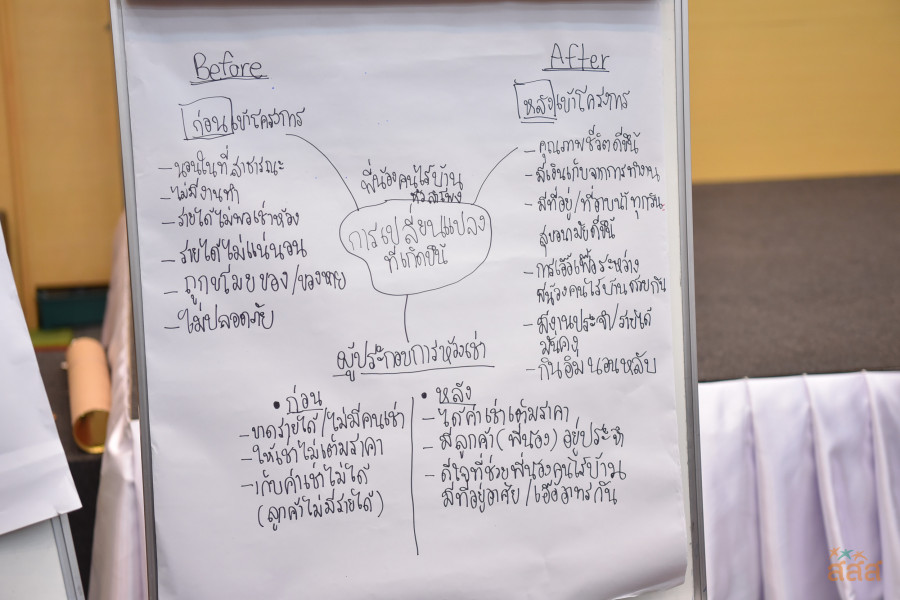 Before
ก่อนเข้าโครงการ
- นอนในที่สาธารณะ
- ไม่มีงานทำ
- รายได้ไม่พอเช่าห้อง
- รายได้ไม่แน่นอน
- ถูกขโมยของ/ของหาย
- ไม่ปลอดภัย
พี่น้องคนไร้บ้าน
หัวลำโพง
การเปลี่ยนแปลง
ที่เกิดขึ้น
After
หลังเข้าโครงการ
- คุณภาพชีวิตดีขึ้น
- มีเงินเก็บจากการทำงาน
- มีที่อยู่/ที่อาบน้ำทุกวัน
สุขอนามัยดีขึ้น
- การเอื้อเฟื้อระหว่าง
พี่น้องคนไร้บ้านด้วยกัน
- มีงานประจำ/รายได้
มั่นคง
- กินอิ่มนอนหลับ
ผู้ประกอบการห้องเช่า
• ก่อน
- ขาดรายได้/ไม่มีคนเช่า
- ให้เช่าไม่เต็มราคา
- เก็บค่าเช่าไม่ได้
(ลูกค้าไม่มีรายได้)
• หลัง
- ได้ค่าเช่าเต็มราคา
- มีลูกค้า(พี่น้อง)อยู่ประจำ
- ดีใจที่ช่วยพี่น้องคนไร้บ้าน
มีที่อยู่อาศัย/เอื้ออาทรกัน
สสส